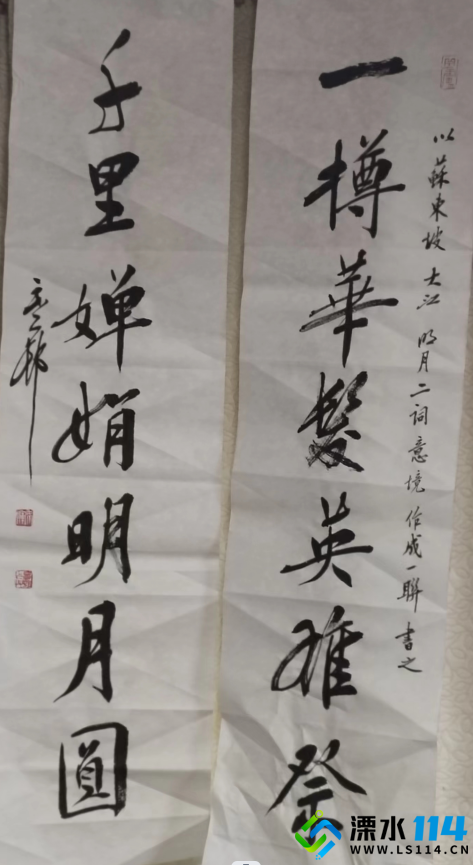 以蘇東坡 大江 明月二词意境 作成一聯 書之
一樽華髮英雄祭
千里嬋娟明月圓
溧水114
www.LS114.cn